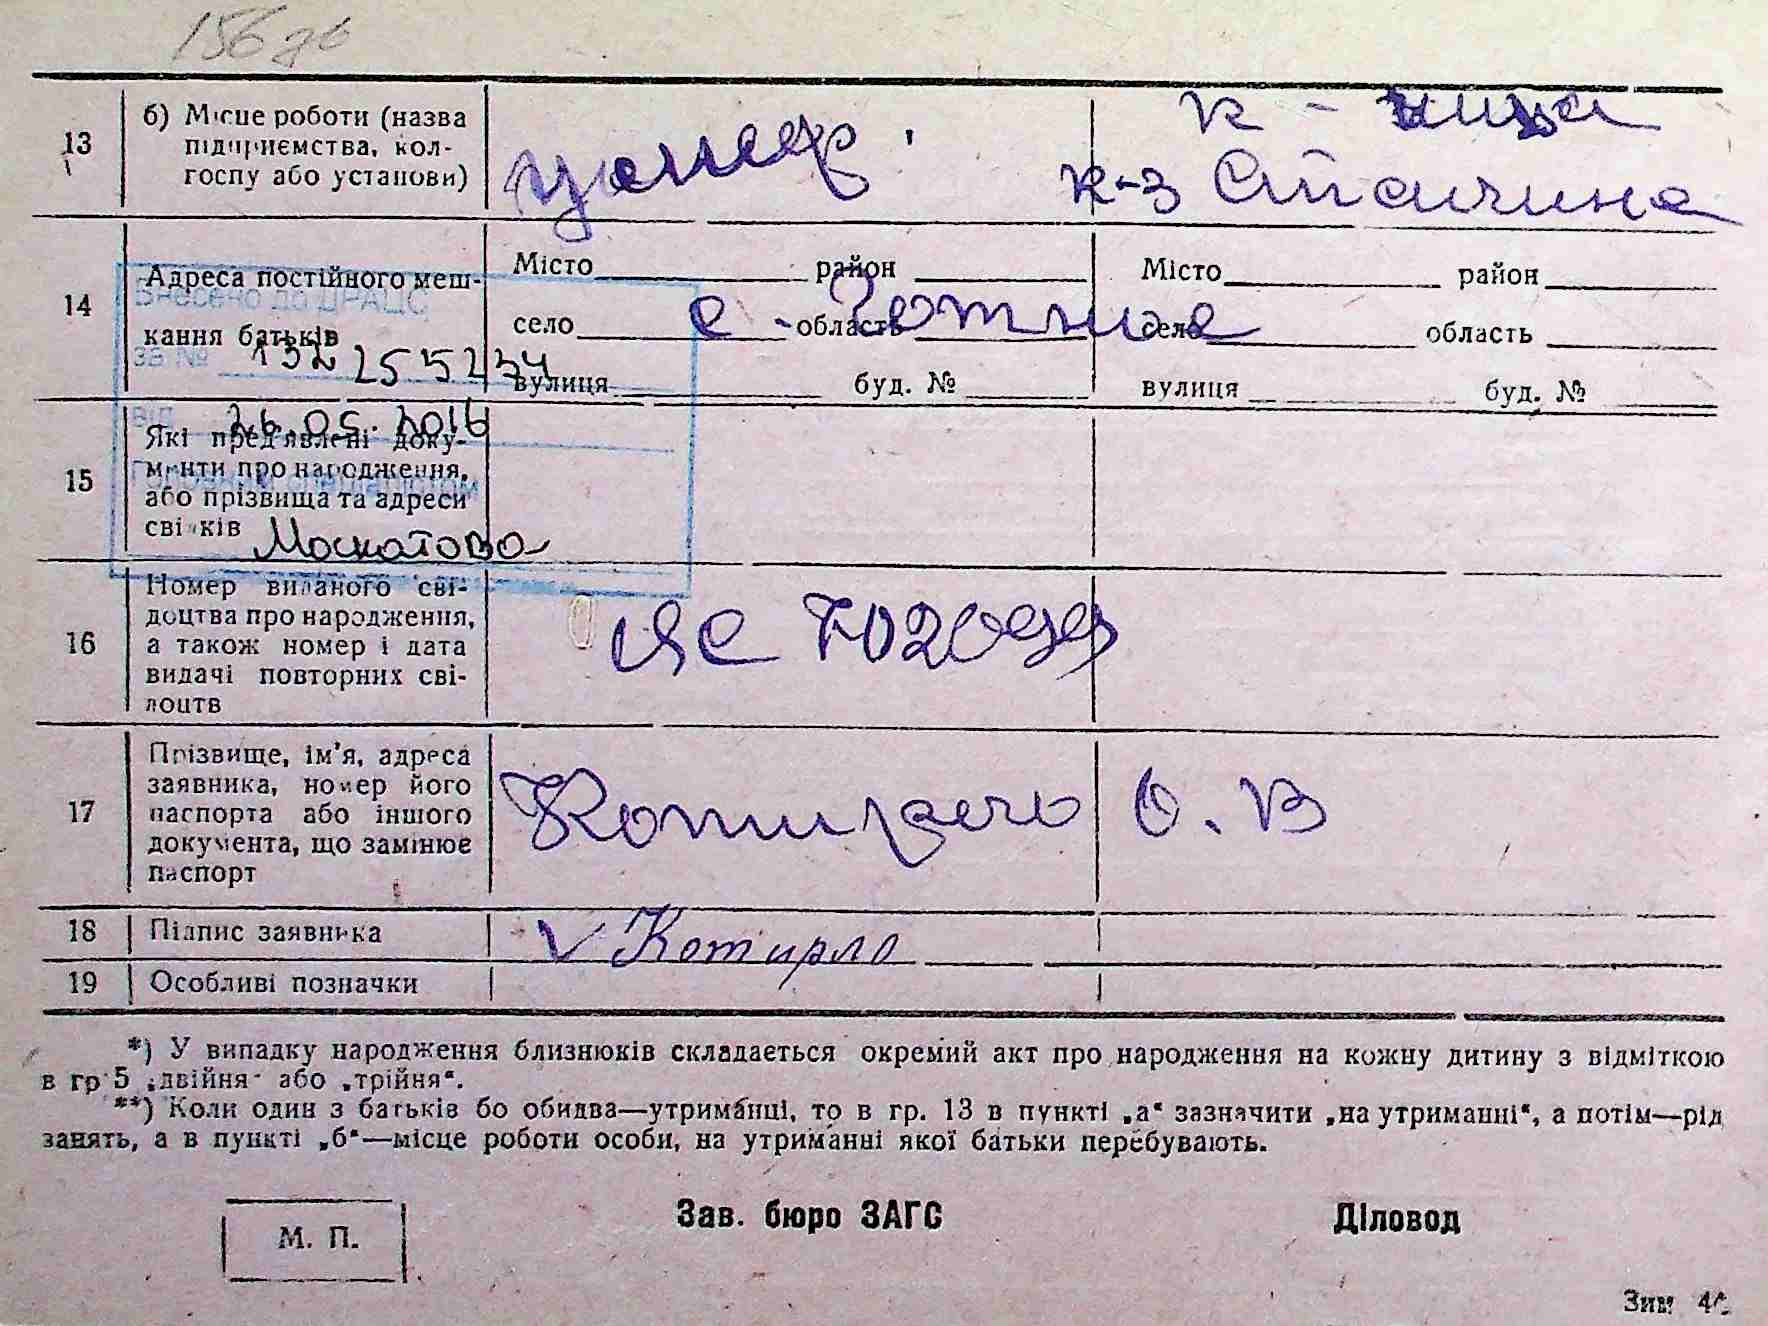 156
13
б) Місце роботи (назва
підприємства, кол-
госпу або установи)
к-ниця
к-з Сталіна
14
Адреса постійного меш-
кання батьків
Місто район
село область
вулиця буд. №
Місто район
село область
вулиця буд. №
Внесено до ДРАЦС
за № 132 255234
від 26.05.2016
Москатова
15
Які пред'явлені доку-
менти про народження,
або прізвища та адреси
свідків
16
Номер виданого сві-
доцтва про народження,
а також номер і дата
видачі повторних сві-
доцтв
ЯС 702099
17
Прізвище, ім'я, адреса
заявника, номер його
паспорта або іншого
документа, що замінює
паспорт
Котирло О. В
18 Підпис заявника
V Котирло
19 Особливі позначки
*) У випадку народження близнюків складається окремий акт про народження на кожну дитину з відміткою
в гр 5 „двійня" або „трійня".
**) Коли один з батьків бо обидва—утриманці, то в гр. 13 в пункті „а" зазначити „на утриманні", а потім—рід
занять, а в пункті „б"—місце роботи особи, на утриманні якої батьки перебувають.
М. П.
Зав. бюро ЗАГС
Діловод